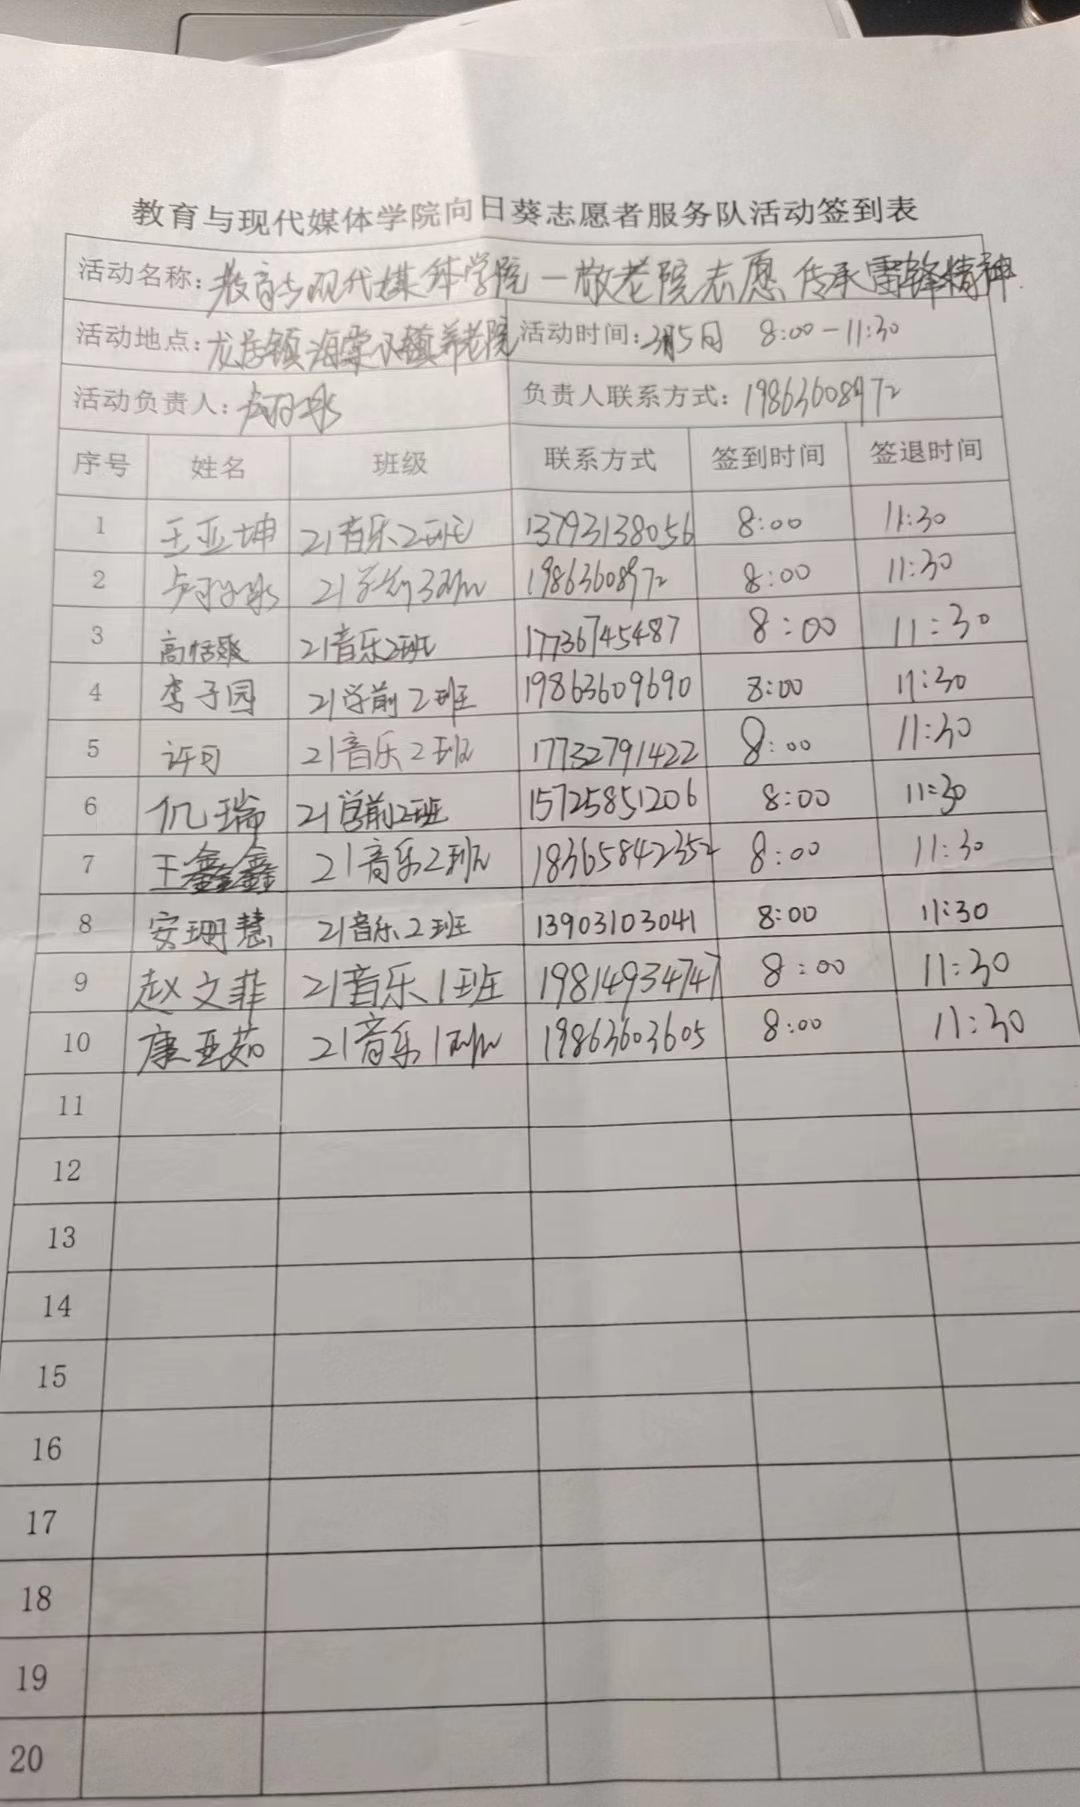 教育与现代媒体学院向日葵志愿者服务队活动签到表
活动名称: 教育与现代媒体学院—敬老院志愿 传承雷锋精神
活动地点: 龙居镇海棠小镇养老院 活动时间: 3月5日 8:00-11:30
活动负责人: 负责人联系方式: 19863608972
序号 姓名 班级 联系方式 签到时间 签退时间
1 王亚坤 21音乐2班 13793138056 8:00 11:30
2 21学前3班 19863608972 8:00 11:30
3 高恬爽 21音乐2班 17736745487 8:00 11:30
4 李子园 21学前2班 19863609690 8:00 11:30
5 许可 21音乐2班 17732791422 8:00 11:30
6 仉瑞 21学前2班 15725851206 8:00 11:30
7 王鑫鑫 21音乐2班 18365842352 8:00 11:30
8 安珊慧 21音乐2班 13903103041 8:00 11:30
9 赵文菲 21音乐1班 19814934747 8:00 11:30
10 康亚茹 21音乐1班 19863603605 8:00 11:30
11
12
13
14
15
16
17
18
19
20